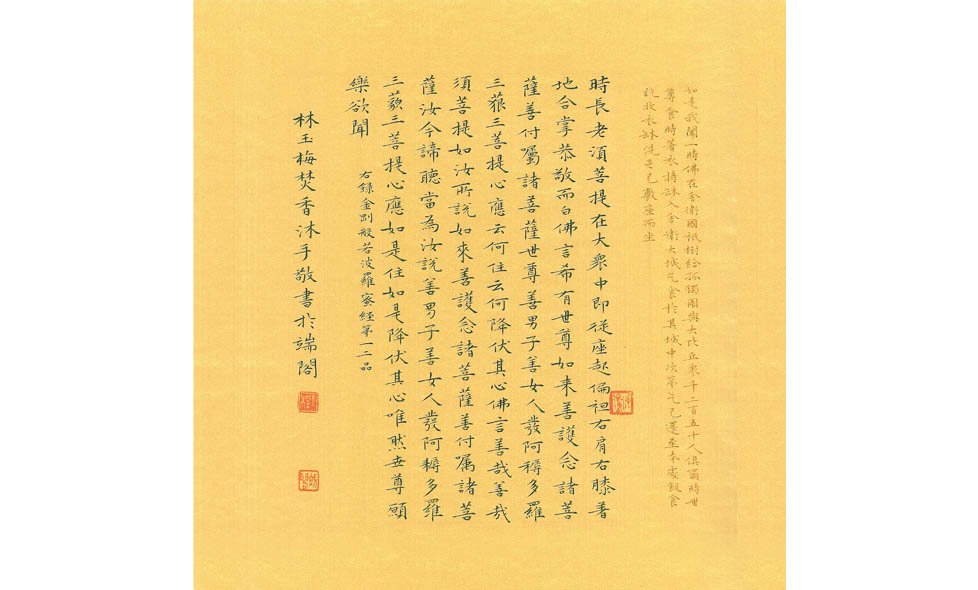 如是我聞一時佛在舍衛國祇樹給孤獨園與大比丘眾千二百五十人俱爾時世
尊食時著衣持缽入舍衛大城乞食於其城中次第乞已還至本處飯食
訖收衣缽洗足已敷座而坐
時長老須菩提在大眾中即從座起偏袒右肩右膝著
地合掌恭敬而白佛言希有世尊如来善護念諸菩
薩善付囑諸菩薩世尊善男子善女人發阿耨多羅
三藐三菩提心應云何住云何降伏其心佛言善哉善哉
須菩提如汝所說如來善護念諸菩薩善付囑諸菩
薩汝今諦聽當為汝說善男子善女人發阿耨多羅
三藐三菩提心應如是住如是降伏其心唯然世尊願
樂欲聞
右錄金剛般若波羅蜜經第一二品
林玉梅焚香沐手敬書於端閣